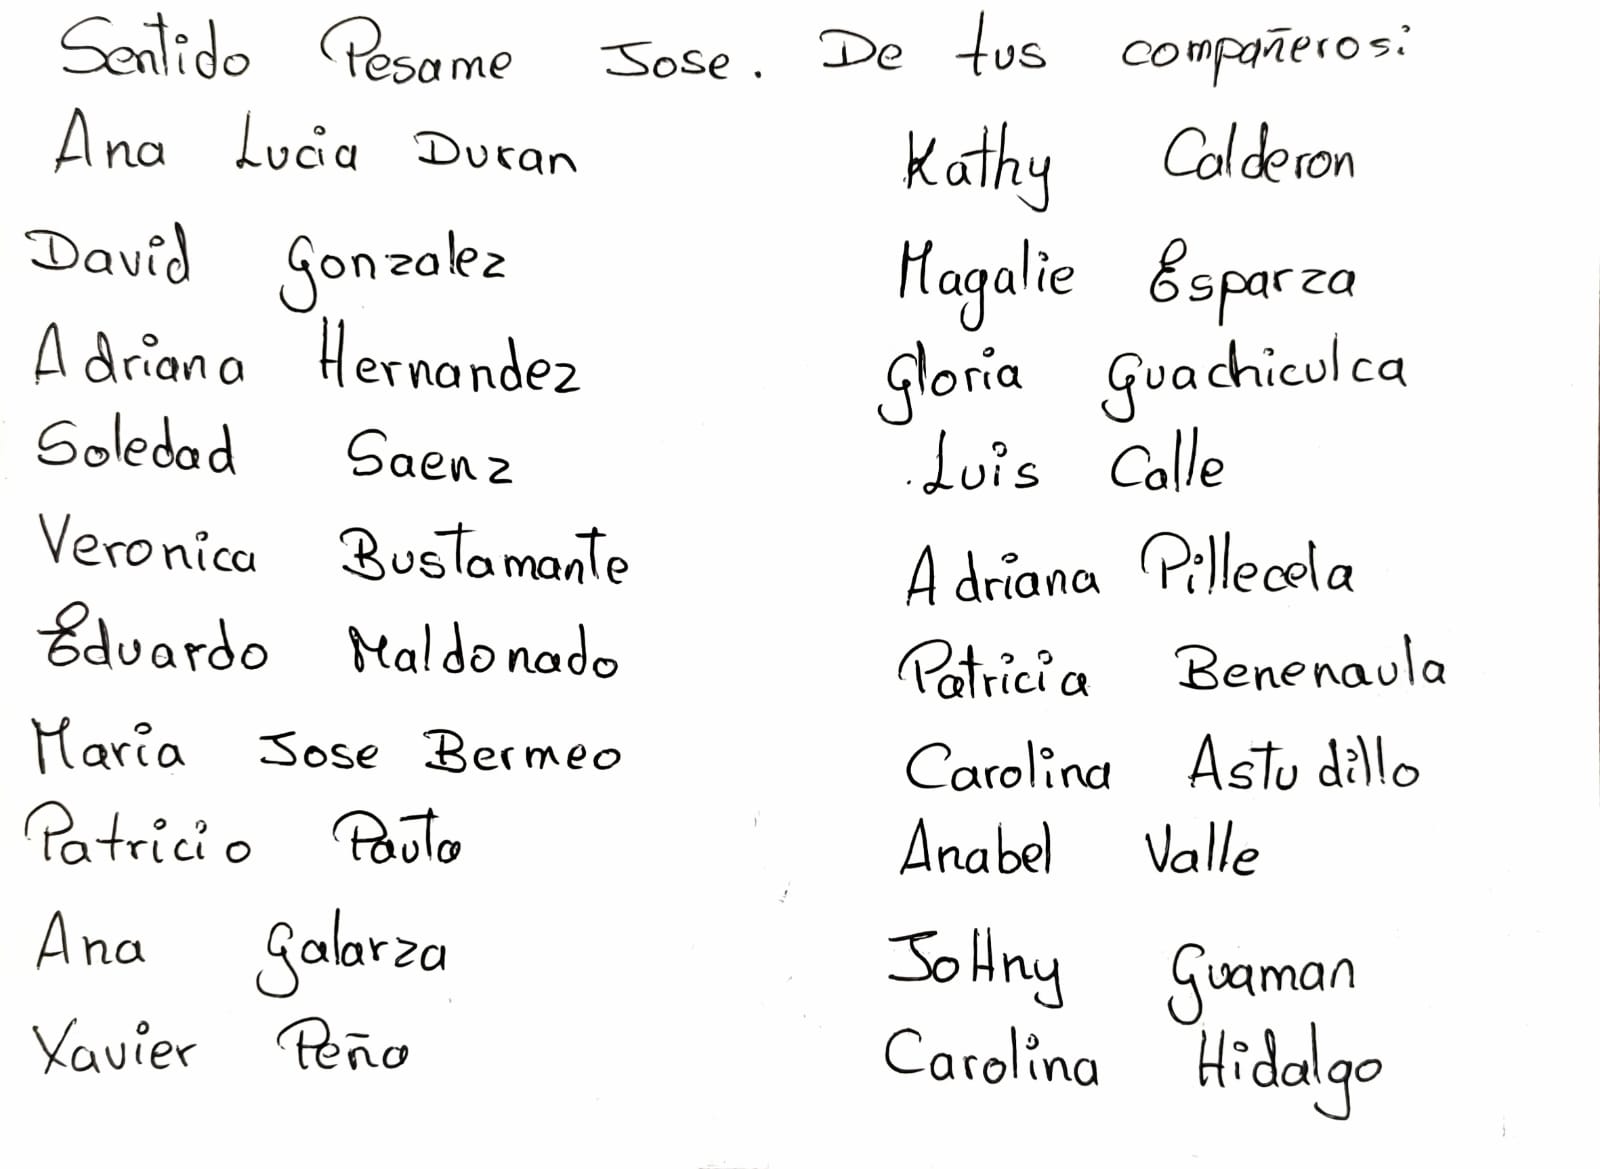 Sentido Pesame Jose. De tus compañeros:
Ana Lucia Duran
David Gonzalez
Adriana Hernandez
Soledad Saenz
Veronica Bustamante
Eduardo Maldonado
Maria Jose Bermeo
Patricio Pauta
Ana Galarza
Xavier Peña
Kathy Calderon
Magalie Esparza
Gloria Guachiculca
Luis Calle
Adriana Pillecela
Patricia Benenaula
Carolina Astudillo
Anabel Valle
JoHny Guaman
Carolina Hidalgo